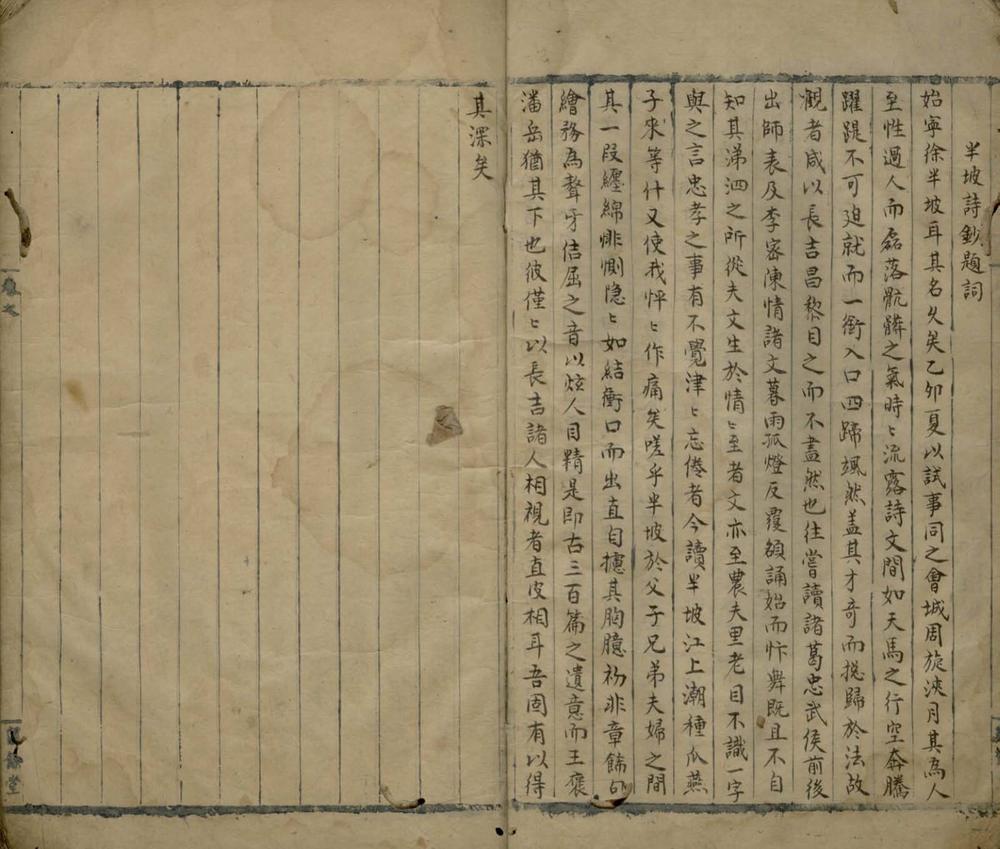 半坡詩鈔題詞
始寧徐半坡耳其名久矣乙卯夏以試事同之會城周旋浹月其為人
至性過人而磊落骯髒之氣時〻流露詩文間如天馬之行空奔騰
躍踶不可廹就而一銜入口四蹄颯然盖其才奇而揔歸於法故
觀者咸以長吉昌黎目之而不盡然也往嘗讀諸葛忠武侯前後
出師表及李宻陳情諸文暮雨孤燈反覆頟誦始而忭舞既且不自
知其涕泗之所從夫文生於情〻至者文亦至農夫里老目不識一字
與之言忠孝之事有不覺津〻忘倦者今讀半坡江上潮種瓜燕
子來等什又使我怦〻作痛矣嗟乎半坡於父子兄弟夫婦之間
其一段纏綿悱惻隐〻如結衝口而出直自攄其胸臆初非章餙
繪務為聱牙佶屈之音以炫人目精是即古三百篇之遺意而王褒
潘岳猶其下也彼僅〻以長吉諸人相視者直皮相耳吾固有以得
其深矣